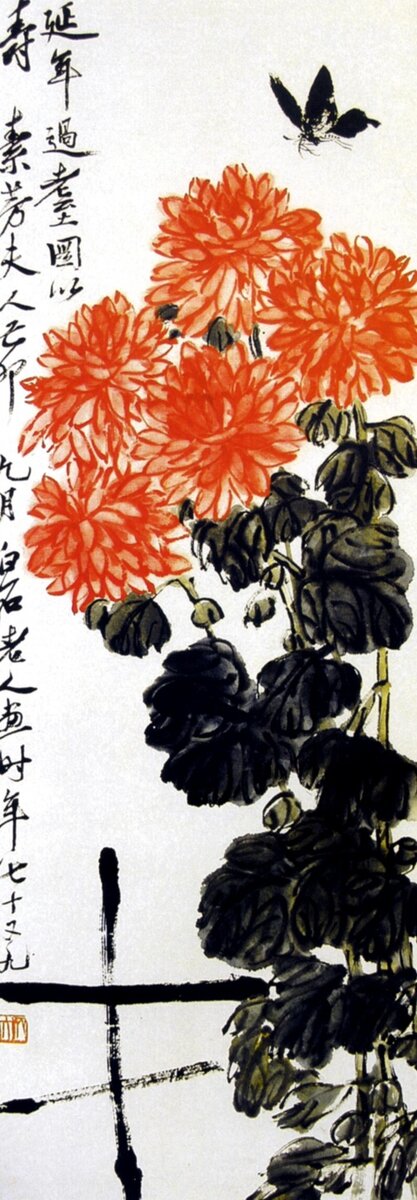 延年過耄圖以
壽 素芳夫人己卯 九月 白石老人畫時年七十又九